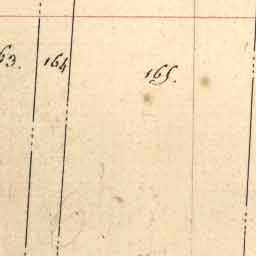 63. 164 165.